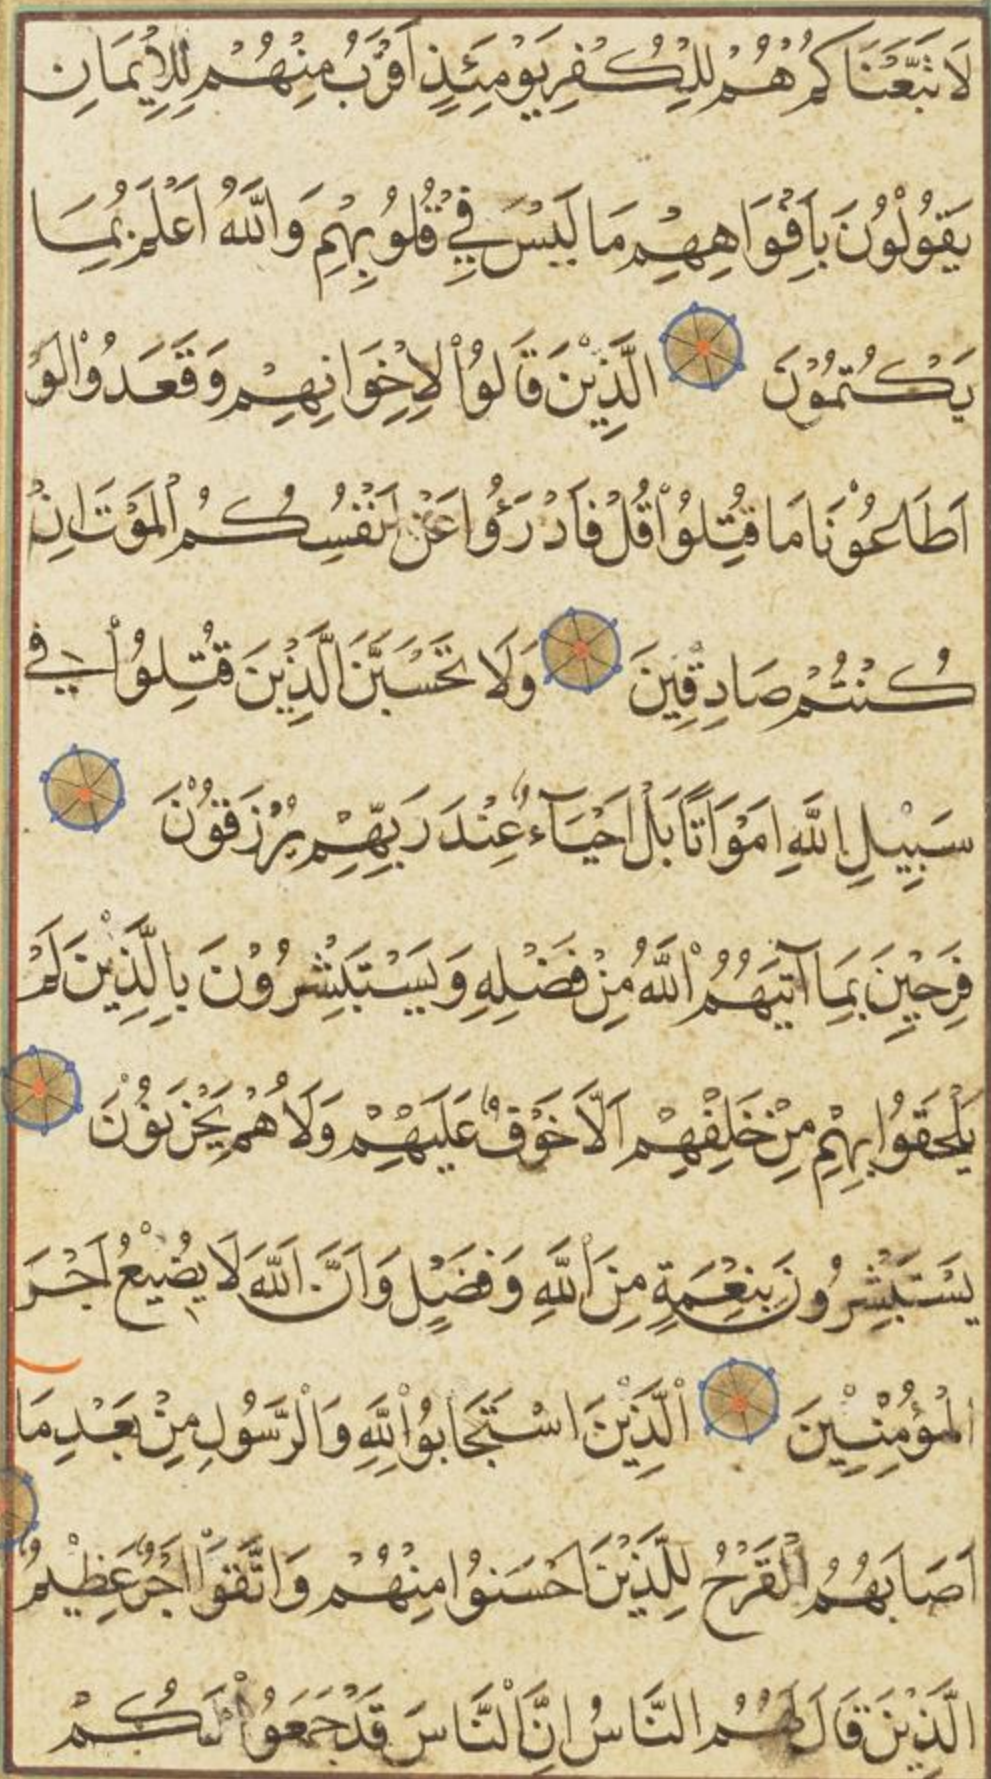 لَا تَّبَعْنَاكُمْ هُمْ لِلْكُفْرِ يَوْمَئِذٍ اَقْرَبُ مِنْهُمْ لِلْاِيمَانِ
يَقُولُونَ بِاَفْوَاهِهِمْ مَا لَيْسَ فِي قُلُوبِهِمْ وَاللَّهُ اَعْلَمُ بِمَا
يَكْتُمُونَ الَّذِينَ قَالُوا لِاِخْوَانِهِمْ وَقَعَدُوا لَوْ
اَطَاعُونَا مَا قُتِلُوا قُلْ فَادْرَؤُا عَنْ اَنْفُسِكُمُ الْمَوْتَ اِنْ
كُنْتُمْ صَادِقِينَ وَلَا تَحْسَبَنَّ الَّذِينَ قُتِلُوا فِي
سَبِيلِ اللَّهِ اَمْوَاتًا بَلْ اَحْيَآءٌ عِنْدَ رَبِّهِمْ يُرْزَقُونَ
فَرِحِينَ بِمَا آتٰيهُمُ اللَّهُ مِنْ فَضْلِهِ وَيَسْتَبْشِرُونَ بِالَّذِينَ لَمْ
يَلْحَقُوا بِهِمْ مِنْ خَلْفِهِمْ اَلَّا خَوْفٌ عَلَيْهِمْ وَلَا هُمْ يَحْزَنُونَ
يَسْتَبْشِرُونَ بِنِعْمَةٍ مِنَ اللَّهِ وَفَضْلٍ وَاَنَّ اللَّهَ لَا يُضِيعُ اَجْرَ
الْمُؤْمِنِينَ الَّذِينَ اسْتَجَابُوا لِلَّهِ وَالرَّسُولِ مِنْ بَعْدِ مَا
اَصَابَهُمُ الْقَرْحُ لِلَّذِينَ اَحْسَنُوا مِنْهُمْ وَاتَّقَوْا اَجْرٌ عَظِيمٌ
الَّذِينَ قَالَ لَهُمُ النَّاسُ اِنَّ النَّاسَ قَدْ جَمَعُوا لَكُمْ